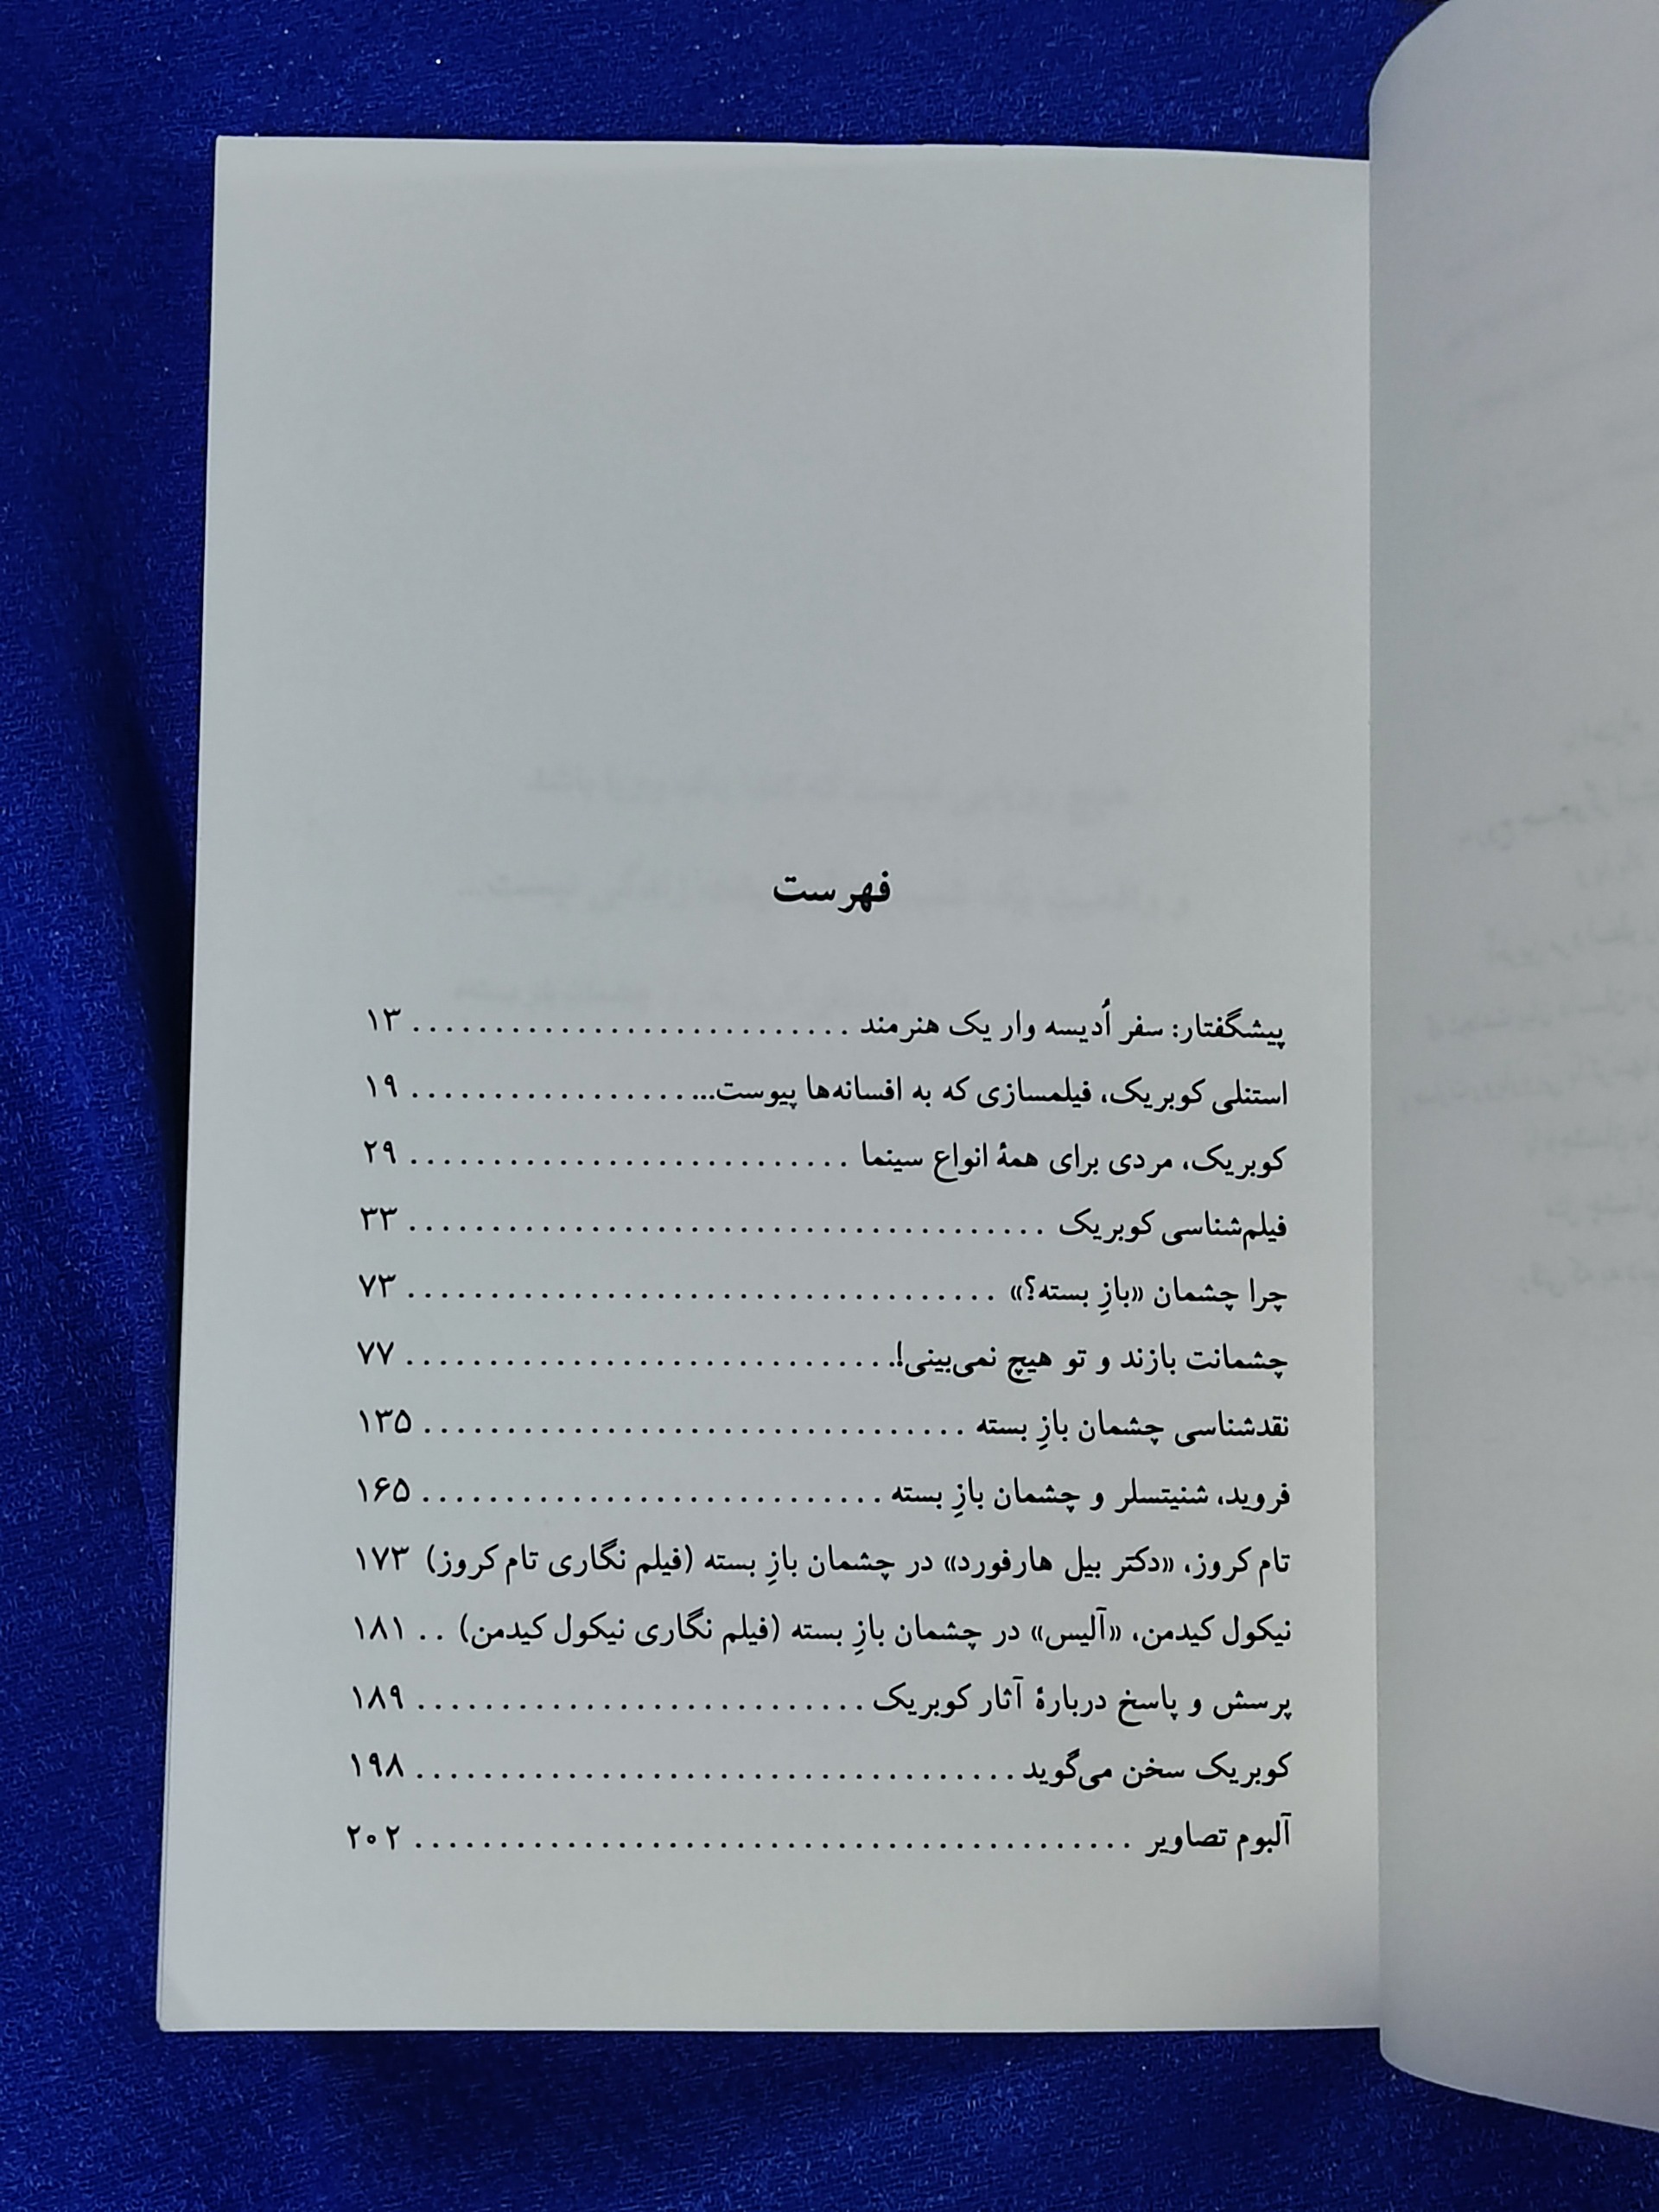 فهرست
پیشگفتار: سفر اُدیسه وار یک هنرمند . . . . . . . . . . . . . . . . . . . . . . . . . . . ۱۳
استنلی کوبریک، فیلمسازی که به افسانه‌ها پیوست... . . . . . . . . . . . . . . . . . ۱۹
کوبریک، مردی برای همۀ انواع سینما . . . . . . . . . . . . . . . . . . . . . . . . . . . ۲۹
فیلم‌شناسی کوبریک . . . . . . . . . . . . . . . . . . . . . . . . . . . . . . . . . . . . . . . ۳۳
چرا چشمان «بازِ بسته؟» . . . . . . . . . . . . . . . . . . . . . . . . . . . . . . . . . . . . ۷۳
چشمانت بازند و تو هیچ نمی‌بینی!. . . . . . . . . . . . . . . . . . . . . . . . . . . . . . ۷۷
نقدشناسی چشمان بازِ بسته . . . . . . . . . . . . . . . . . . . . . . . . . . . . . . . . . ۱۳۵
فروید، شنیتسلر و چشمان بازِ بسته . . . . . . . . . . . . . . . . . . . . . . . . . . . . ۱۶۵
تام کروز، «دکتر بیل هارفورد» در چشمان بازِ بسته (فیلم نگاری تام کروز) ۱۷۳
نیکول کیدمن، «آلیس» در چشمان بازِ بسته (فیلم نگاری نیکول کیدمن) . . ۱۸۱
پرسش و پاسخ دربارۀ آثار کوبریک . . . . . . . . . . . . . . . . . . . . . . . . . . . ۱۸۹
کوبریک سخن می‌گوید . . . . . . . . . . . . . . . . . . . . . . . . . . . . . . . . . . . . ۱۹۸
آلبوم تصاویر . . . . . . . . . . . . . . . . . . . . . . . . . . . . . . . . . . . . . . . . . . . ۲۰۲